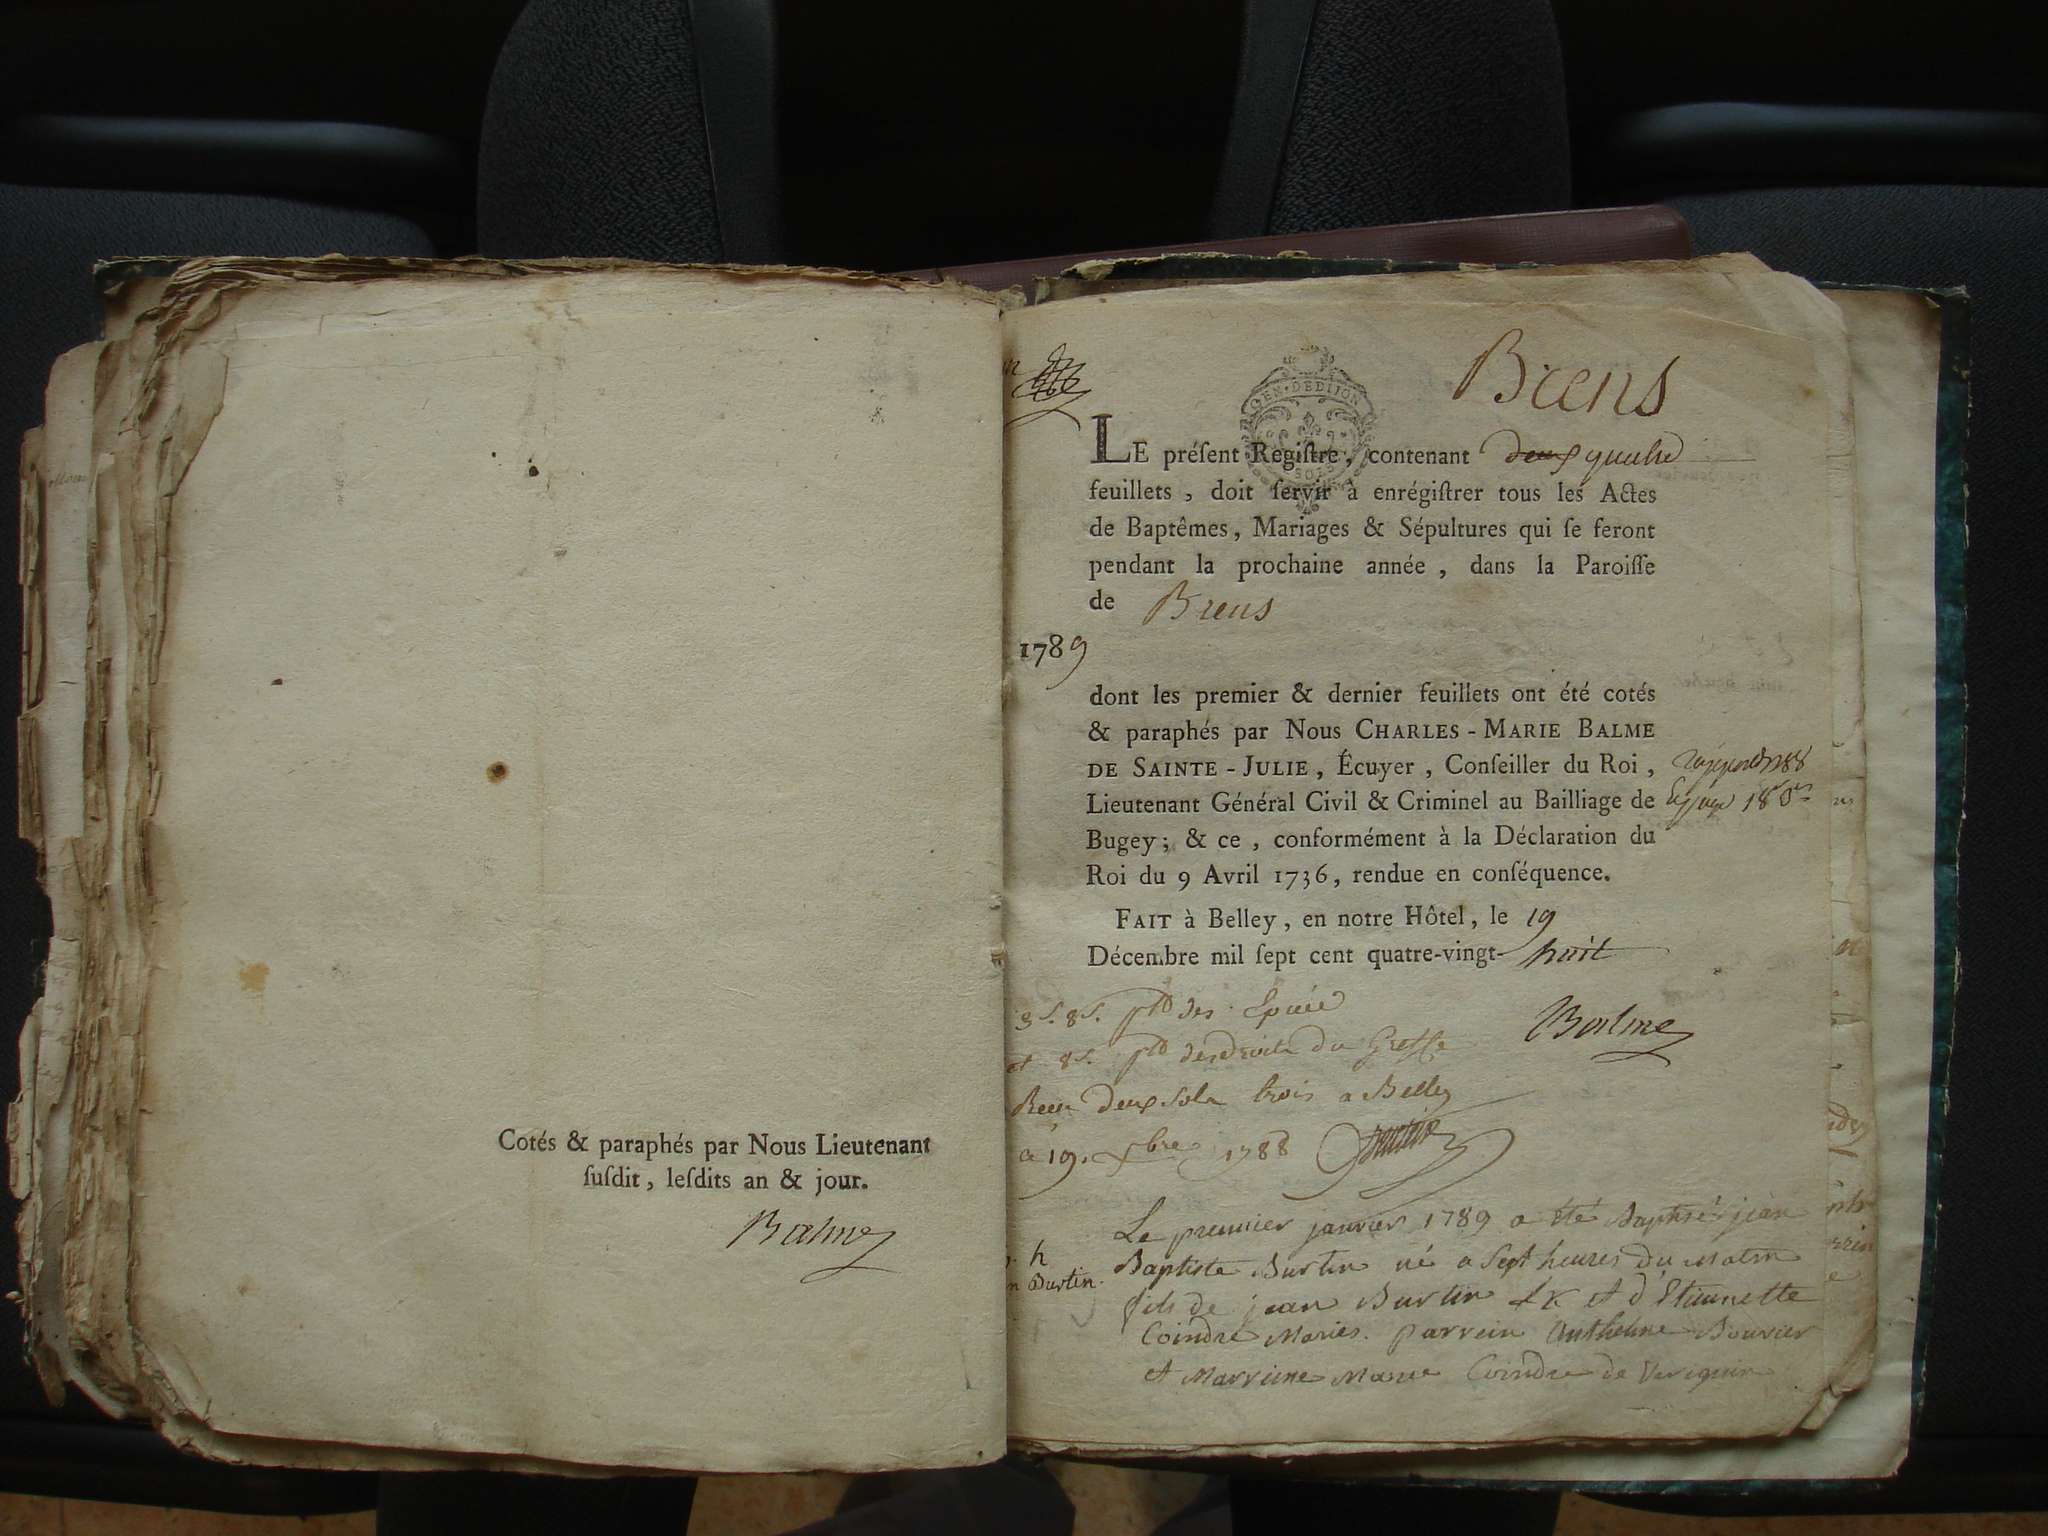 Cotés & paraphés par Nous Lieutenant
ſuſdit, leſdits an & jour.
Balme
Brens
GEN·DEDIJON
SOLS
LE préſent Regiſtre, contenant deux quatre
feuillets, doit ſervir à enrégiſtrer tous les Actes
de Baptêmes, Mariages & Sépultures qui ſe feront
pendant la prochaine année, dans la Paroiſſe
de Brens
1789
dont les premier & dernier feuillets ont été cotés
& paraphés par Nous CHARLES-MARIE BALME
DE SAINTE-JULIE, Écuyer, Conſeiller du Roi,
Lieutenant Général Civil & Criminel au Bailliage de
Bugey; & ce, conformément à la Déclaration du
Roi du 9 Avril 1736, rendue en conſéquence.
FAIT à Belley, en notre Hôtel, le 19
Décembre mil ſept cent quatre-vingt-huit
Balme
et 8s. des droits du Greffe
Receu deux sols trois a Belley
a 19. xbre 1788
n Burtin.
Le premier janvier 1789 a été Baptisé jean
Baptiste Burtin né a sept heures du Matin
fils de jean Burtin et d'Etiennette
Coindre Mariés. parrein Anthelme Bouvier
et Marreine Marie Coindre de